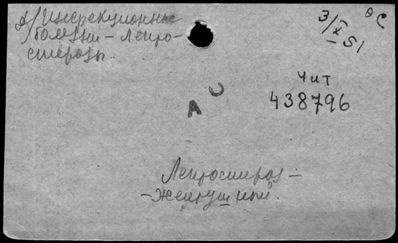 А/Инфекционные
болезни - Лепто-
спирозы.
3/X 51
θ С
Чит
438796
А С
Лептоспироз -
- желтушный.